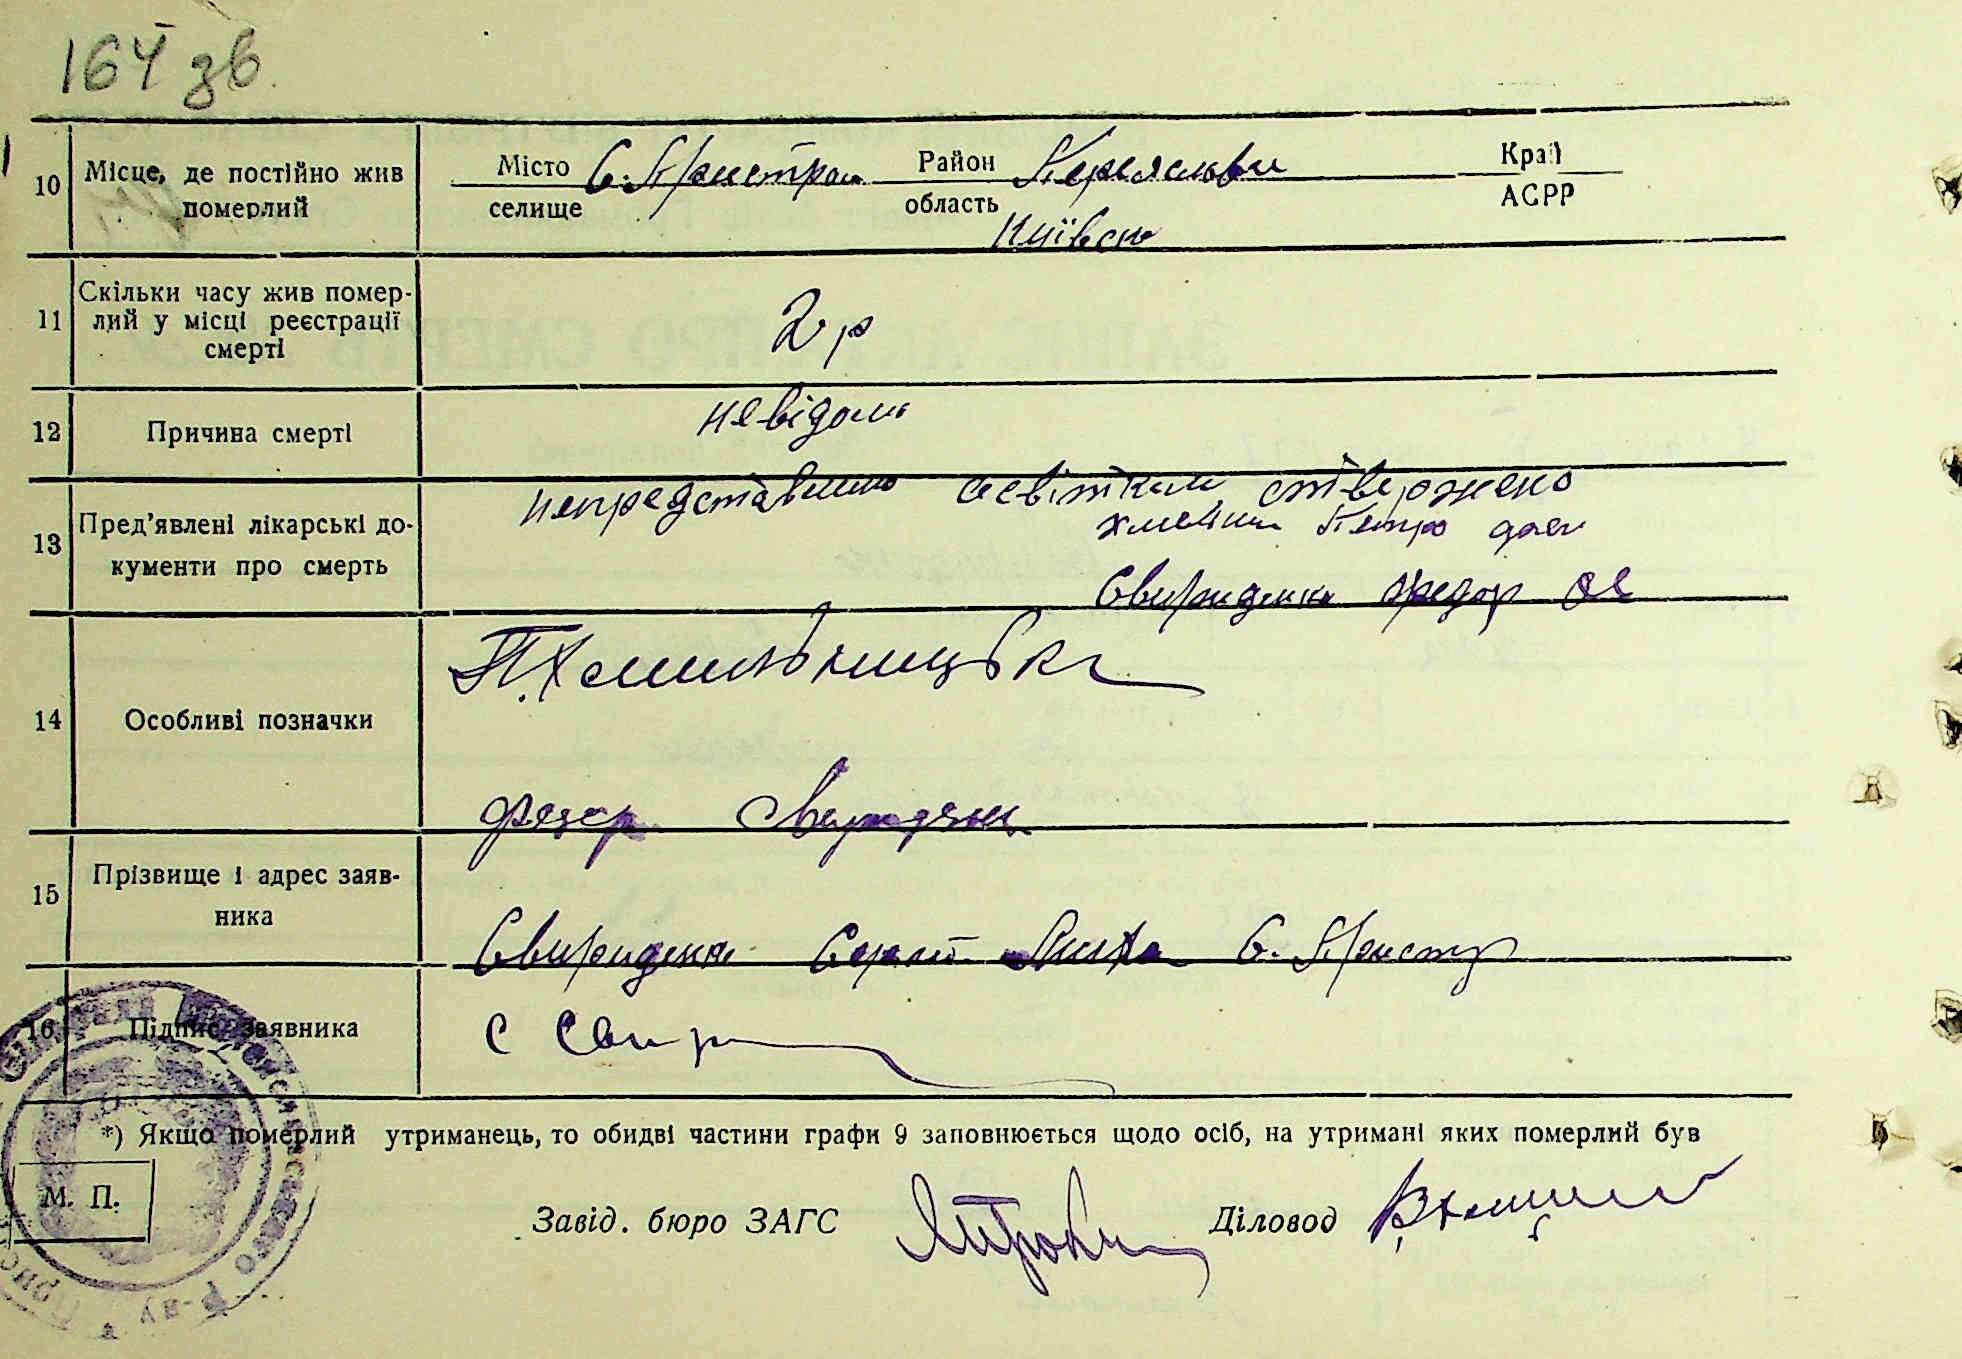 164 зв
10 Місце, де постійно жив померлий
Місто селище С. Пристром Район область Переяслівськ Край АСРР
Київськ
11 Скільки часу жив помер-
лий у місці реєстрації
смерті
2 р
12 Причина смерті
невідома
13 Пред'явлені лікарські до-
кументи про смерть
непредставлено свідками стверджено
Петро
Свириденко Федор
14 Особливі позначки
П. Хмильницька
Федор Свириденко
15 Прізвище і адрес заяв-
ника
Свириденко Сергій С. Пристр
16 Підпис заявника
С Свир
*) Якщо померлий утриманець, то обидві частини графи 9 заповнюється щодо осіб, на утримані яких померлий був
М. П.
Завід. бюро ЗАГС
Діловод
Р-ну